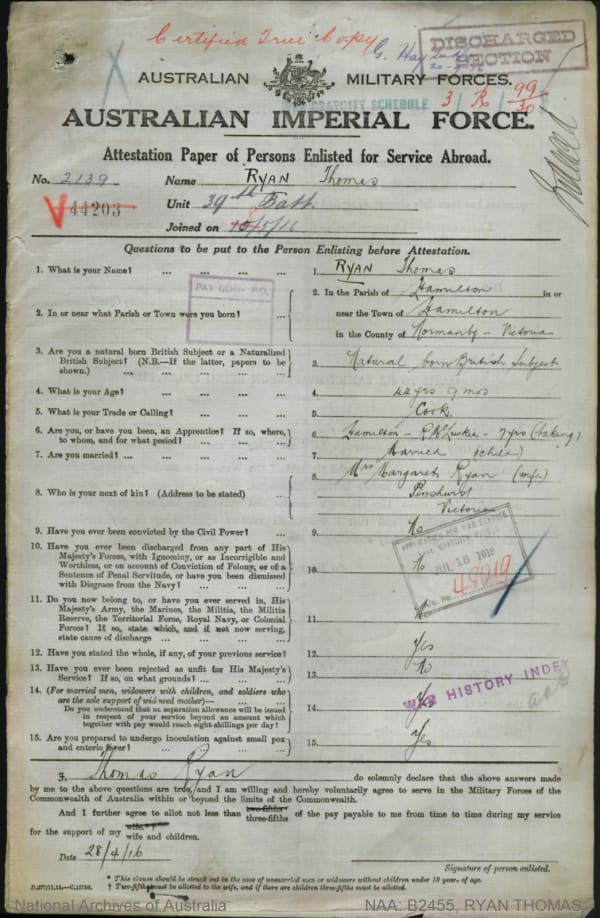 Certified True Copy
DISCHARGED
SECTION
AUSTRALIAN MILITARY FORCES.
SCHEDULE 3/ R 99/30
AUSTRALIAN IMPERIAL FORCE.
Attestation Paper of Persons Enlisted for Service Abroad.
No. 2139 Name RYAN Thomas
V 44203 Unit 39th Batt
Joined on
Questions to be put to the Person Enlisting before Attestation.
1. What is your Name? ... ... ... ... 1. RYAN Thomas
PAY BOOK NO.
2. In or near what Parish or Town were you born? ... 2. In the Parish of Hamilton in or
near the Town of Hamilton
in the County of Normanby - Victoria
3. Are you a natural born British Subject or a Naturalized
British Subject? (N.B.—If the latter, papers to be
shown.) ... ... ... 3. Natural born British Subject
4. What is your Age? ... ... ... ... 4. 44 yrs 9 mos
5. What is your Trade or Calling? ... ... ... 5. Cook
6. Are you, or have you been, an Apprentice? If so, where,
to whom, and for what period? ... ... ... 6. Hamilton - - 7 yrs (baking)
7. Are you married? ... ... ... ... 7. Married (child)
8. Who is your next of kin? (Address to be stated) ... 8. Mrs Margaret Ryan (wife)
Penshurst
Victoria
9. Have you ever been convicted by the Civil Power? ... 9. No
10. Have you ever been discharged from any part of His
Majesty's Forces, with Ignominy, or as Incorrigible and
Worthless, or on account of Conviction of Felony, or of a
Sentence of Penal Servitude, or have you been dismissed
with Disgrace from the Navy? ... ... 10. N
APPLICATION FOR WAR
JUL 15 1919
11. Do you now belong to, or have you ever served in, His
Majesty's Army, the Marines, the Militia, the Militia
Reserve, the Territorial Force, Royal Navy, or Colonial
Forces? If so, state which, and if not now serving,
state cause of discharge ... ... ... 11. N
12. Have you stated the whole, if any, of your previous service? 12. Yes
13. Have you ever been rejected as unfit for His Majesty's
Service? If so, on what grounds? ... ... 13. No
14. (For married men, widowers with children, and soldiers who
are the sole support of widowed mother)—
Do you understand that no separation allowance will be issued
in respect of your service beyond an amount which
together with pay would reach eight shillings per day? 14. Yes
WAR HISTORY INDEX
15. Are you prepared to undergo inoculation against small pox
and enteric fever? ... ... ... 15. Yes
I, Thomas Ryan do solemnly declare that the above answers made
by me to the above questions are true, and I am willing and hereby voluntarily agree to serve in the Military Forces of the
Commonwealth of Australia within or beyond the limits of the Commonwealth.
And I further agree to allot not less than two-fifths three-fifths of the pay payable to me from time to time during my service
for the support of my wife. wife and children.
Date 28/4/16
Signature of person enlisted.
* This clause should be struck out in the case of unmarried men or widowers without children under 18 year. of age.
† Two-fifths must be allotted to the wife, and if there are children three-fifths must be allotted.
National Archives of Australia NAA: B2455, RYAN THOMAS